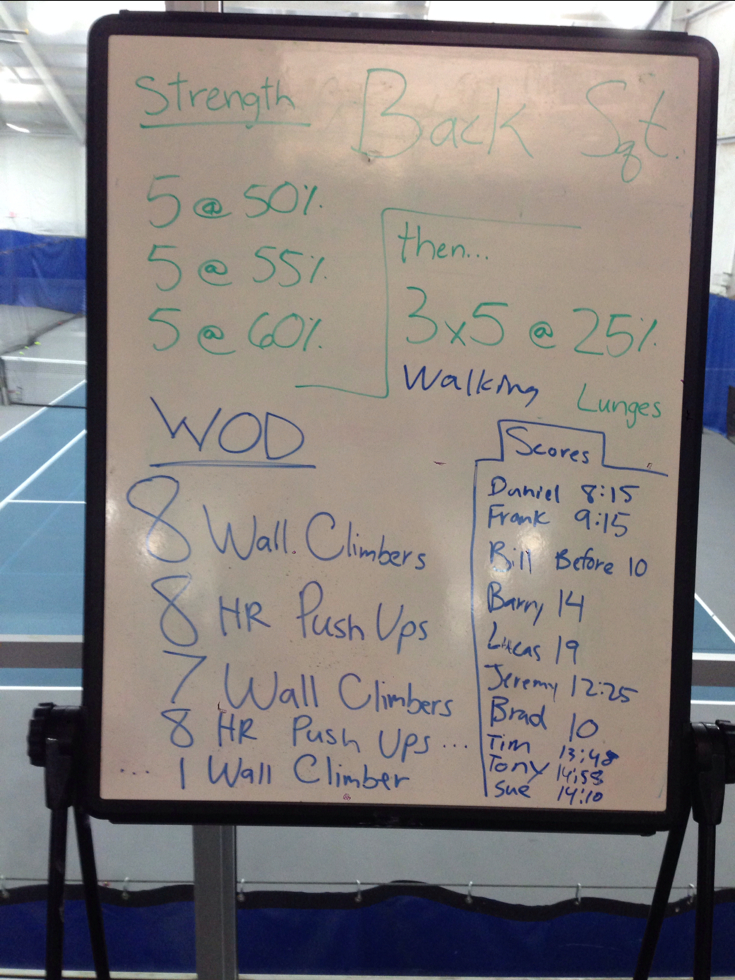 Strength Back Sqt.
5 @ 50%
5 @ 55%
5 @ 60%
then...
3x5 @ 25%
Walking Lunges
WOD
8 Wall Climbers
8 HR Push Ups
7 Wall Climbers
8 HR Push Ups ...
... 1 Wall Climber
Scores
Daniel 8:15
Frank 9:15
Bill Before 10
Barry 14
Lucas 19
Jeremy 12:25
Brad 10
Tim 13:48
Tony 14:58
Sue 14:10